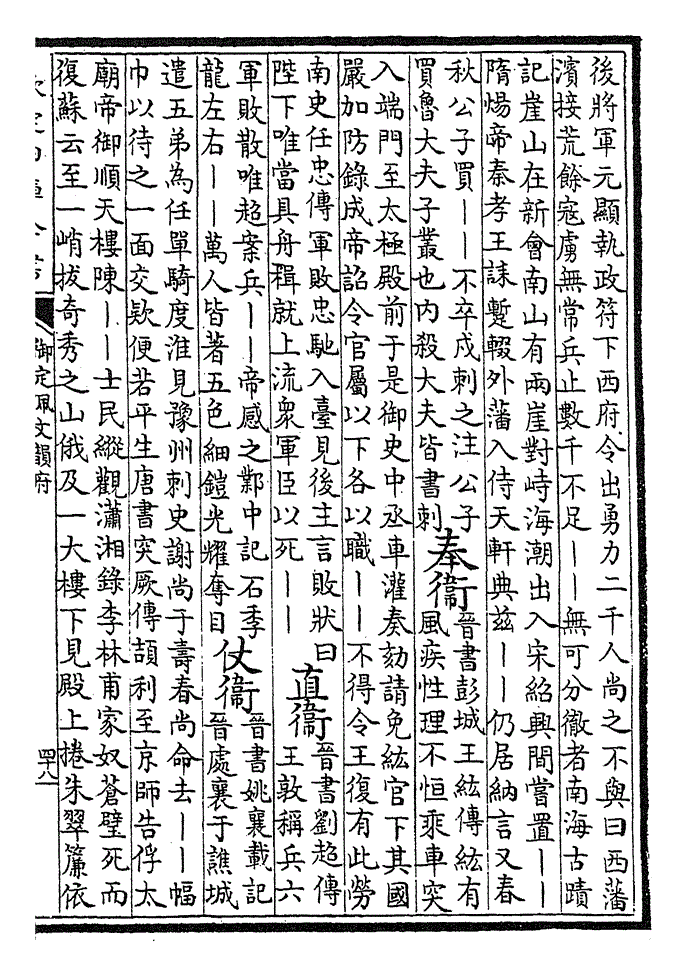 後將軍元顯執政符下西府令出勇力二千人尚之不與曰西藩
濱接荒餘寇虜無常兵止數千不足丨丨無可分徹者南海古蹟
記崖山在新會南山有兩崖對峙海潮出入宋紹興間嘗置丨丨
隋煬帝秦孝王誄蹔輟外藩入侍天軒典茲丨丨仍居納言又春
秋公子買丨丨不卒戍刺之注公子
買魯大夫子叢也内殺大夫皆書刺
奉衞
晉書彭城王紘傳紘有
風疾性理不恒乘車突
入端門至太極殿前于是御史中丞車灌奏劾請免紘官下其國
嚴加防錄成帝詔令官屬以下各以職丨丨不得令王復有此勞
南史任忠傳軍敗忠馳入臺見後主言敗狀曰
陛下唯當具舟楫就上流衆軍臣以死丨丨
直衞
晉書劉超傳
王敦稱兵六
軍敗散唯超案兵丨丨帝感之鄴中記石季
龍左右丨丨萬人皆著五色細鎧光耀奪目
仗衞
晉書姚襄載記
晉處襄于譙城
遣五弟為任單騎度淮見豫州刺史謝尚于壽春尚命去丨丨幅
巾以待之一面交欵便若平生唐書突厥傳頡利至京師告俘太
廟帝御順天樓陳丨丨士民縱觀瀟湘錄李林甫家奴蒼璧死而
復蘇云至一峭拔奇秀之山俄及一大樓下見殿上捲朱翠簾依
欽定四庫全書
御定佩文韻府
四十八